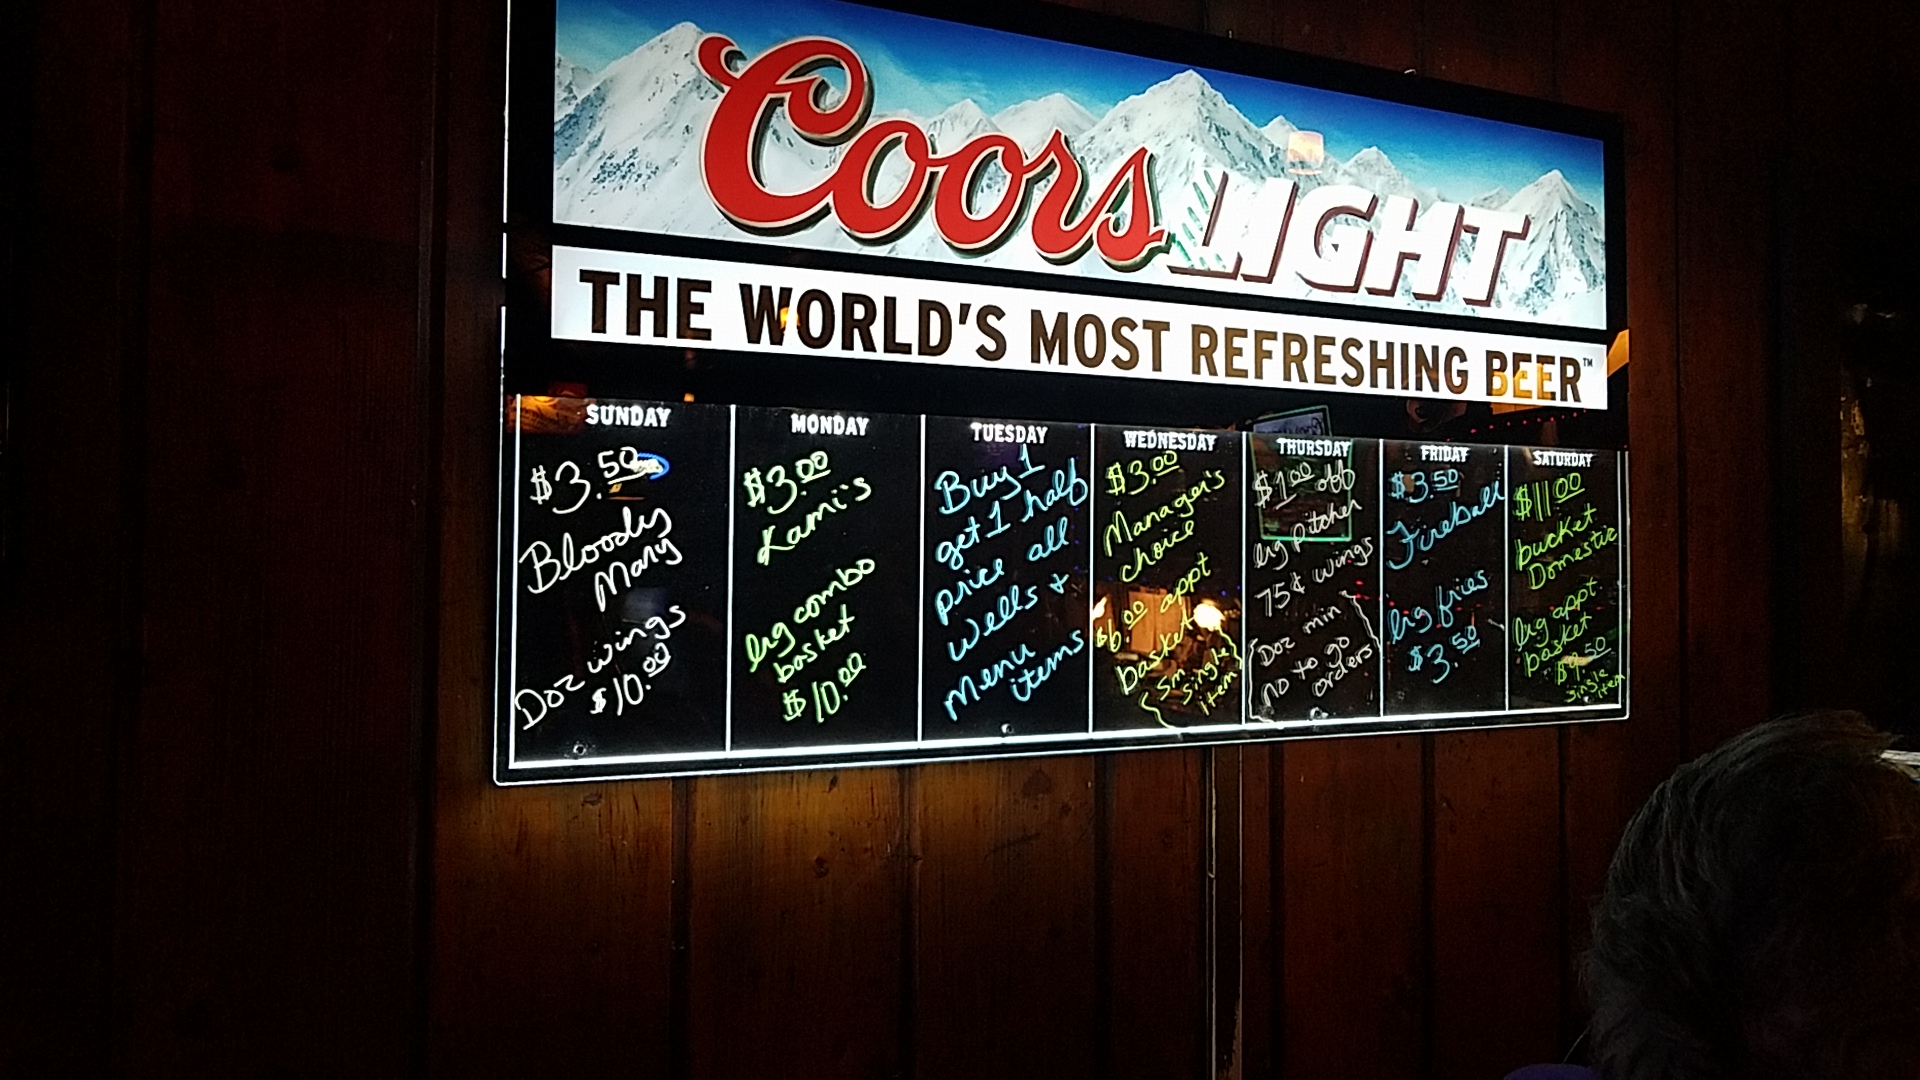 Coors LIGHT
THE WORLD'S MOST REFRESHING BEER™
SUNDAY
$3.50
Bloody
Mary
Doz wings
$10.00
MONDAY
$3.00
Kami's
lrg combo
basket
$10.00
TUESDAY
Buy 1
get 1 half
price all
wells +
menu
items
WEDNESDAY
$3.00
Manager's
choice
$6.00 appt
basket
(Sm
single
item)
THURSDAY
$1.00 off
lrg pitcher
75¢ wings
(Doz min
no to go
orders)
FRIDAY
$3.50
Fireball
lrg fries
$3.50
SATURDAY
$11.00
bucket
Domestic
lrg appt.
basket
$9.50
single item